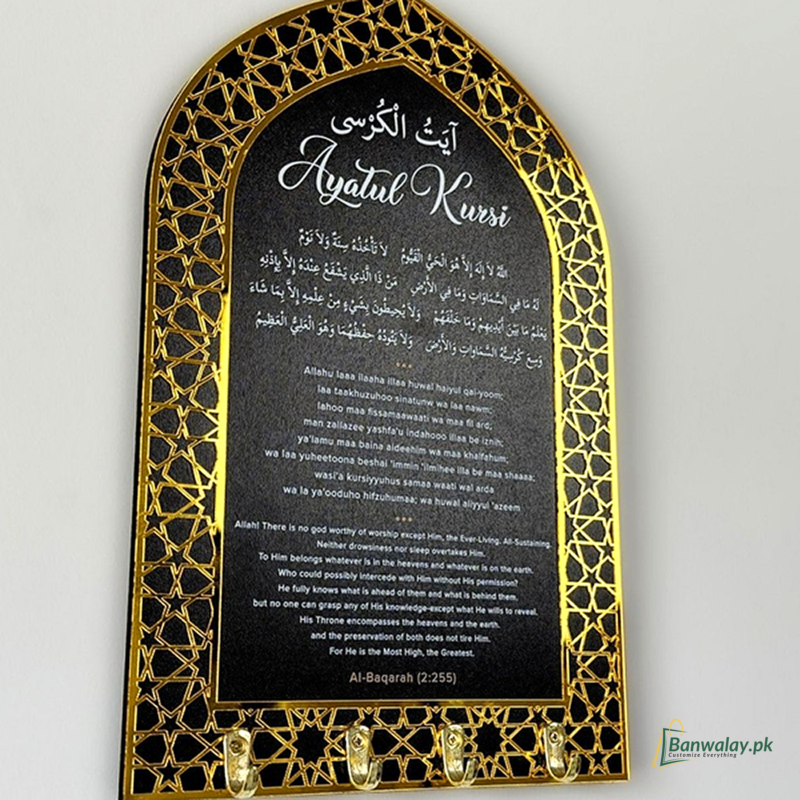 آيَتُ الْكُرْسى
Ayatul Kursi
اللَّهُ لاَ إِلَهَ إِلاَّ هُوَ الْحَيُّ الْقَيُّومُ لاَ تَأْخُذُهُ سِنَةٌ وَلاَ نَوْمٌ
لَهُ مَا فِي السَّمَاوَاتِ وَمَا فِي الْأَرْضِ مَنْ ذَا الَّذِي يَشْفَعُ عِنْدَهُ إِلاَّ بِإِذْنِهِ
يَعْلَمُ مَا بَيْنَ أَيْدِيهِمْ وَمَا خَلْفَهُمْ وَلاَ يُحِيطُونَ بِشَيْءٍ مِنْ عِلْمِهِ إِلاَّ بِمَا شَاءَ
وَسِعَ كُرْسِيُّهُ السَّمَاوَاتِ وَالْأَرْضَ وَلاَ يَئُودُهُ حِفْظُهُمَا وَهُوَ الْعَلِيُّ الْعَظِيمُ
Allahu laaa ilaaha illaa huwal haiyul qai-yoom;
laa taakhuzuhoo sinatunw wa laa nawm;
lahoo maa fissamaawaati wa maa fil ard;
man zallazee yashfa'u indahooo illaa be iznih;
ya'lamu maa baina aideehim wa maa khalfahum;
wa laa yuheetoona beshai 'immin 'ilmihee illa be maa shaaaa;
wasi'a kursiyyuhus samaa waati wal arda
wa la ya'ooduho hifzuhumaa; wa huwal aliyyul 'azeem
Allah! There is no god worthy of worship except Him, the Ever-Living. All-Sustaining.
Neither drowsiness nor sleep overtakes Him.
To Him belongs whatever is in the heavens and whatever is on the earth.
Who could possibly intercede with Him without His permission?
He fully knows what is ahead of them and what is behind them.
but no one can grasp any of His knowledge-except what He wills to reveal.
His Throne encompasses the heavens and the earth.
and the preservation of both does not tire Him.
For He is the Most High, the Greatest.
Al-Baqarah (2:255)
Banwalay.pk
Customize Everything